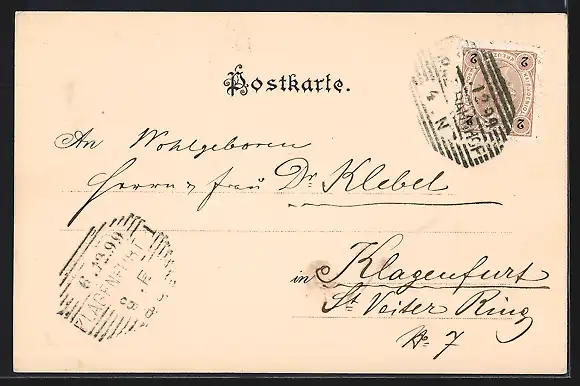 Postkarte.
2 2
2 2
12.99
BAHNHOF
4 N
An Wohlgeboren
Herrn u Frau Dr Klebel
in Klagenfurt
St. Veiter Ring
No 7
6.12.99
KLAGENFURT 1